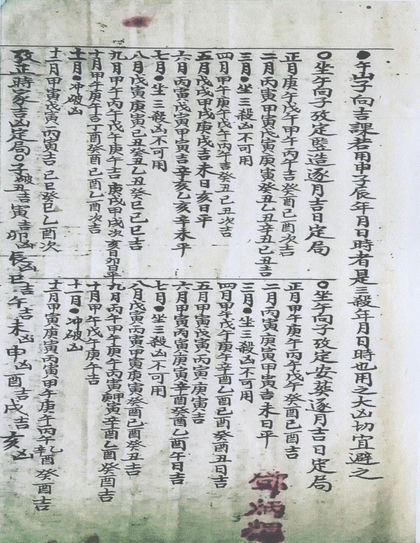 ●午山子向吉課若用申子辰年月日時者是三殺年月日時也用之大凶切宜避之
○坐午向子攷定竪造逐月吉日定局
正月庚午戊午甲午丙午吉癸酉己酉丁酉次吉
二月丙寅甲寅戊寅庚寅癸丑乙丑辛丑己丑吉
三月●坐三殺不可用
四月甲午庚午戊午丙午吉乙丑次吉
五月戊戌甲戌庚戌吉未日亥日平
六月丙寅戊寅甲寅吉辛亥乙亥未平
七月●坐三殺不可用
八月戊寅丙寅庚寅己丑癸丑乙丑癸巳己巳吉
九月甲午丙午戊午庚午吉庚戌甲戌次亥日卯日平
十月甲午庚午吉丁酉癸酉己酉乙酉次吉
十一月●冲破凶
十二月甲寅戊寅丙寅吉己巳癸巳乙酉次
攷正時家吉凶定局○子凶丑吉寅吉卯凶辰凶巳吉午吉未凶申凶酉吉戌吉亥凶
○坐午向子攷定安葬逐月吉日定局
正月甲午庚午丙午戊午癸酉己酉吉
二月丙寅甲寅庚寅吉未日平
三月●坐三殺不可用
四月甲午戊午庚午辛酉乙酉己酉癸酉丑日吉
五月甲寅戊寅丙寅庚寅吉
六月甲寅丙寅庚寅辛酉癸酉乙酉午日吉
七月●坐三殺不可用
八月戊寅丙寅甲寅庚寅癸酉己酉癸丑吉
九月丙午甲午庚午丙寅庚寅辛酉乙酉癸酉吉
十月甲午戊午庚午吉
十一月●冲破凶
十二月甲寅庚寅丙寅甲午庚午丙午乙酉癸酉吉